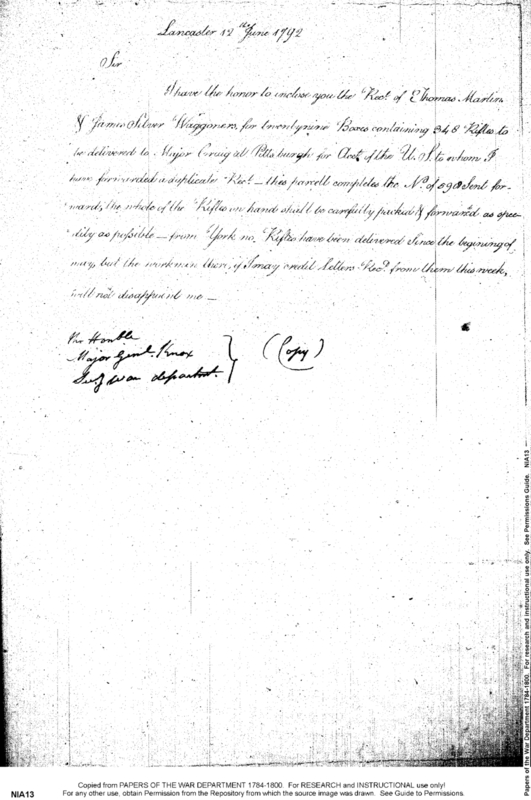 Lancaster 12th June 1792
Sir
I have the honor to inclose you the Rect. of Thomas Martin
& James Silver Waggoners, for twentynine Boxes containing 348 Rifles to
be delivered to Major Craig at Pittsburgh for Acct of the U. S. to whom I
have forwarded a duplicate Rect. — this parcell completes the No. of 898 Sent for-
ward, the whole of the Rifles on hand shall be carefully packed & forwarded as spee-
dily as possible — from York no Rifles have been delivered Since the begining of
may, but the workmen there, if I may credit letters Recd. from them this week,
will not disappoint me —
The Honble
Major Genl. Knox
Secy War department.
(Copy)
Papers of the War Department 1784-1800. For research and instructional use only. See Permissions Guide. NIA13
Copied from PAPERS OF THE WAR DEPARTMENT 1784-1800. For RESEARCH and INSTRUCTIONAL use only!
NIA13 For any other use, obtain Permission from the Repository from which the source image was drawn. See Guide to Permissions.